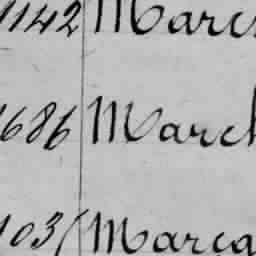 1142 Marc
1686 March
103 Marca